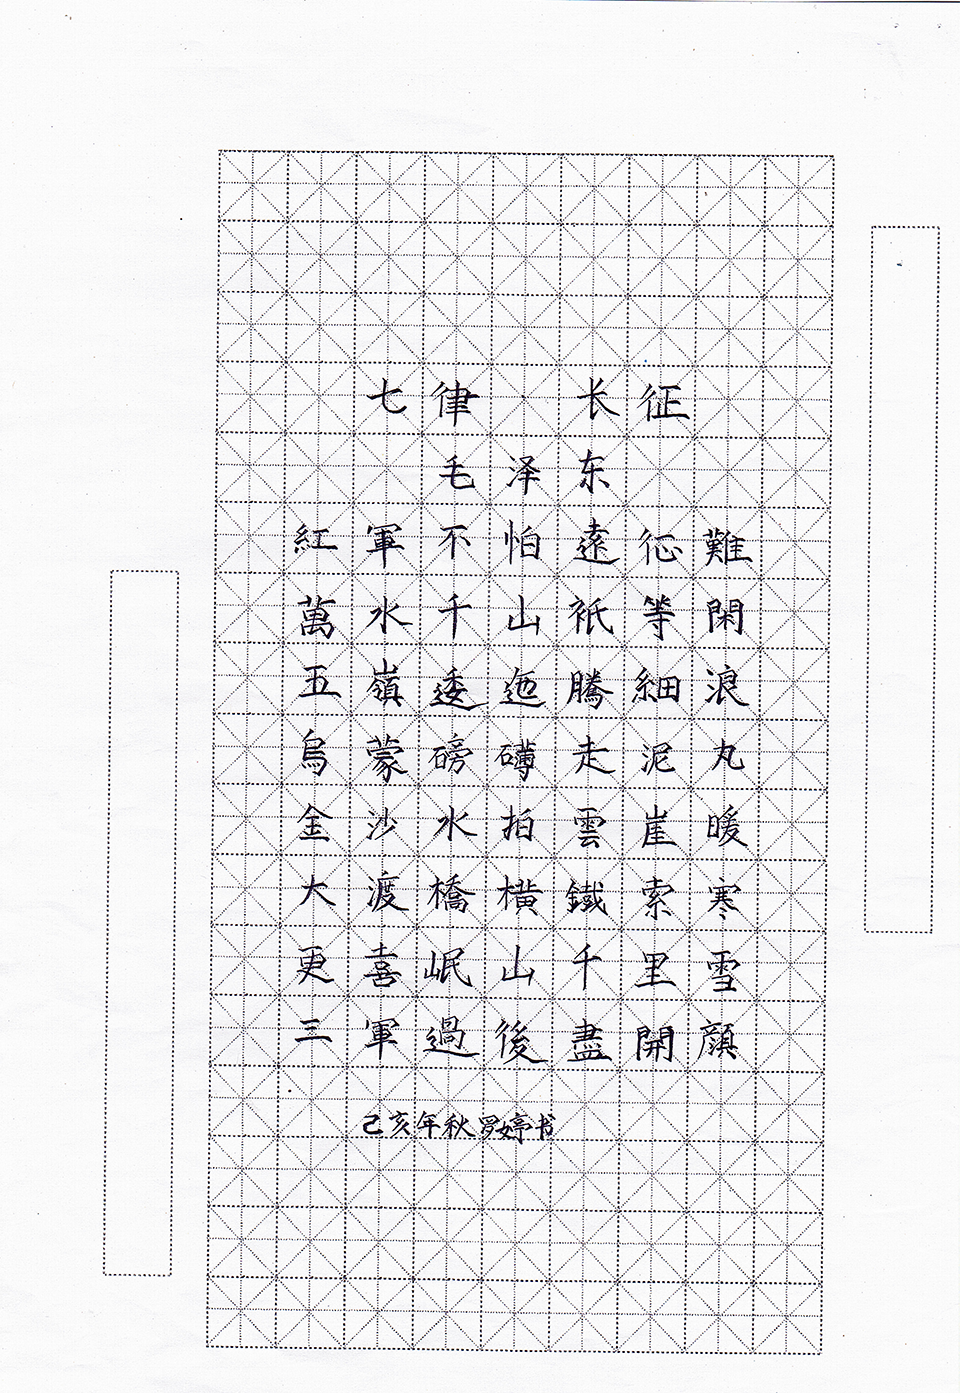 七律 长征
毛泽东
紅軍不怕遠征難
萬水千山衹等閑
五嶺逶迤騰細浪
烏蒙磅礴走泥丸
金沙水拍雲崖暖
大渡橋横鐵索寒
更喜岷山千里雪
三軍過後盡開顔
己亥年秋罗婷书